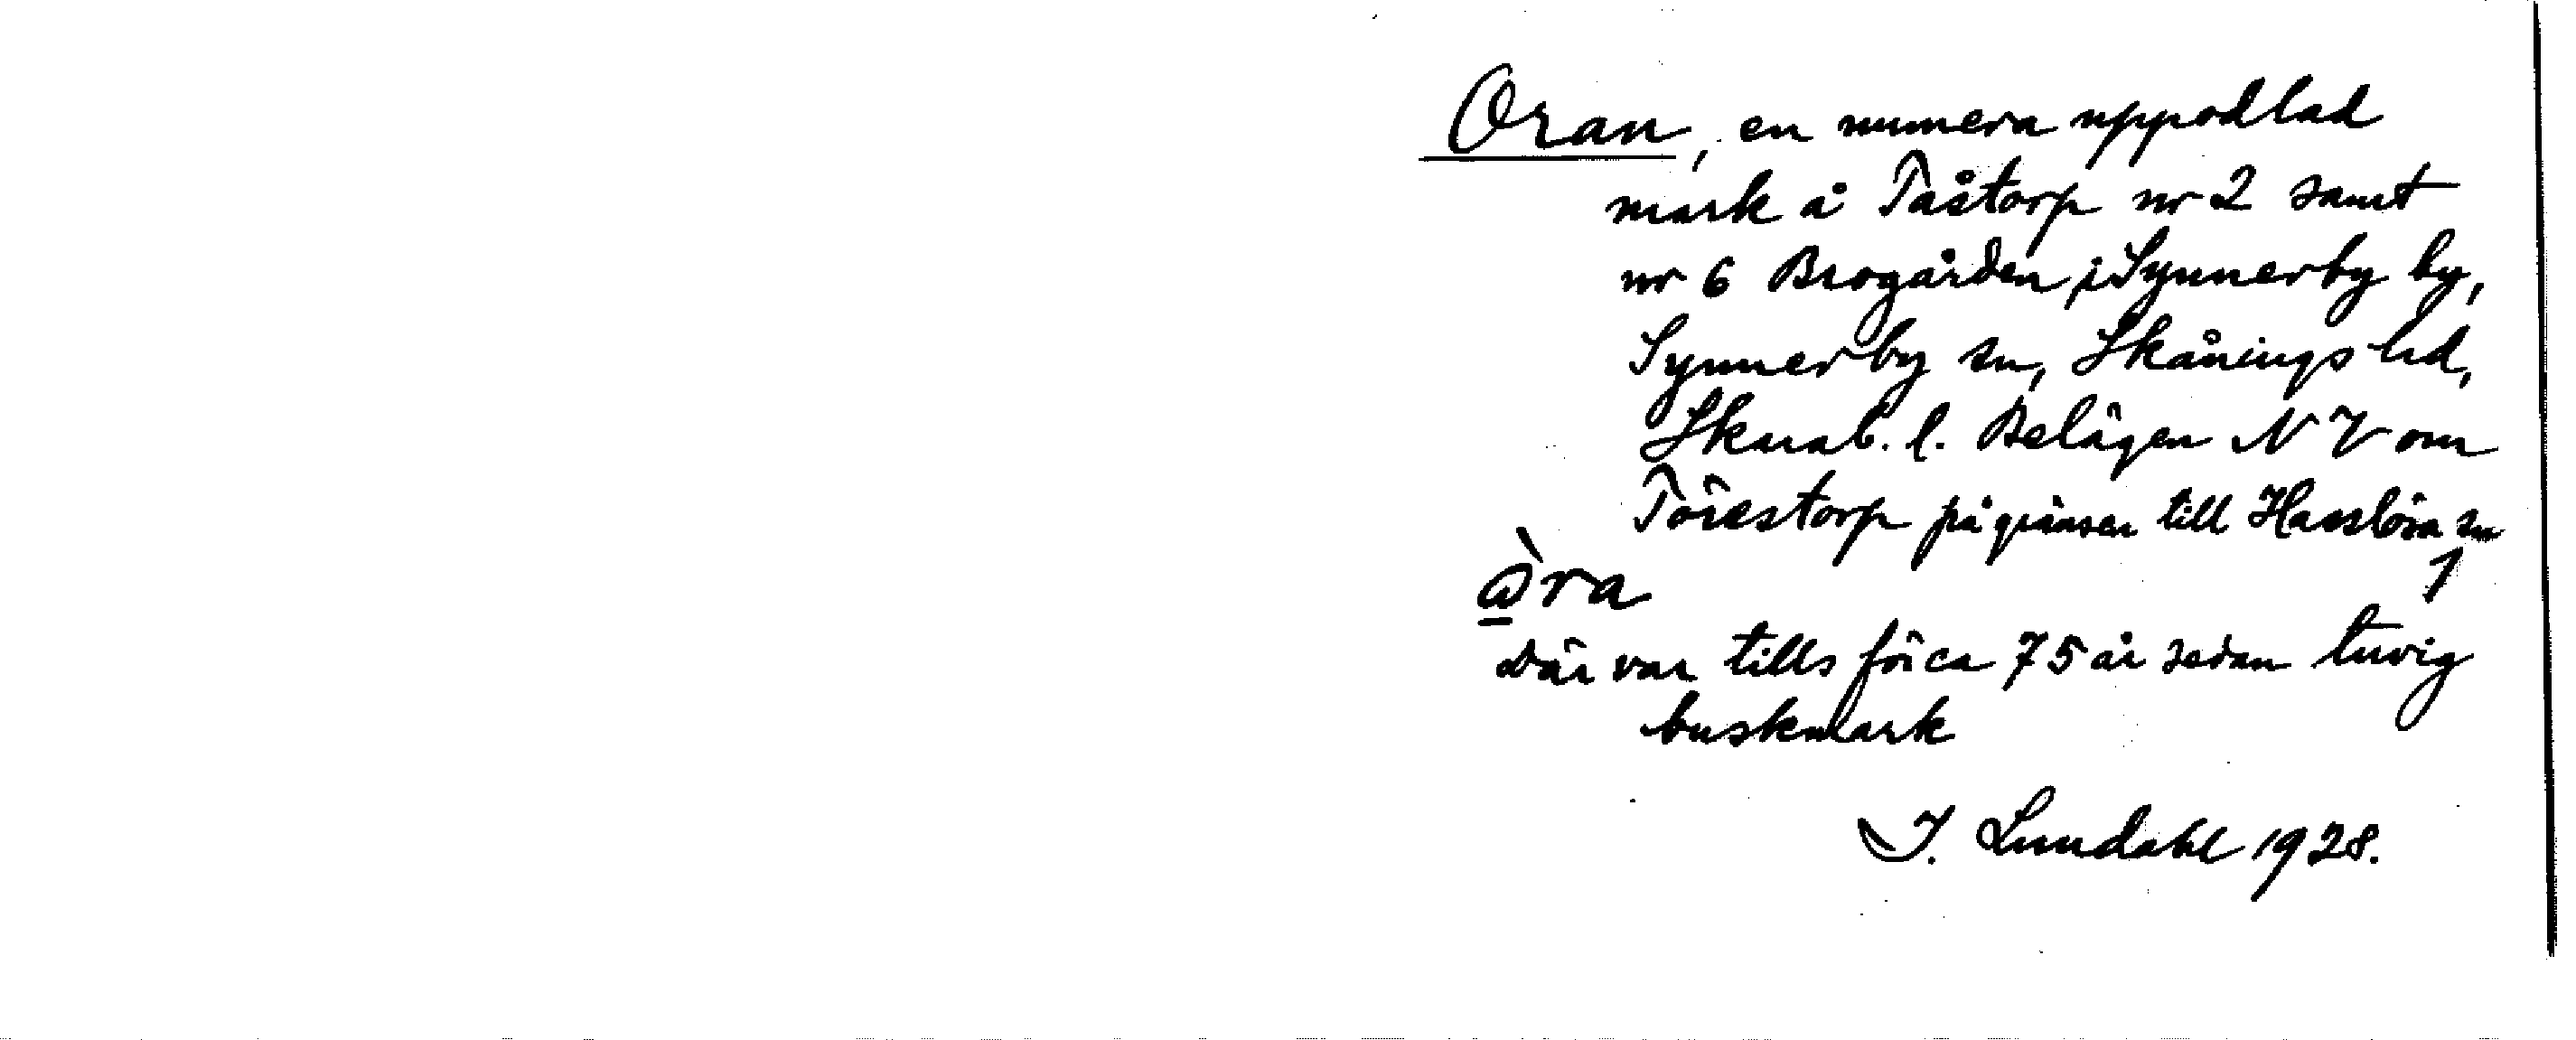 Oran, en numera uppodlad
mark å Tåstorp nr 2 samt
nr 6 Brogården i Synnerby by,
Synnerby sn, Skånings hd,
Skarab. l. Belägen NV om
Törestorp på gränsen till Hasslösa sn
òra
1
Där var tills för ca 75 år sedan tuvig
buskmark
I. Lundahl 1928.